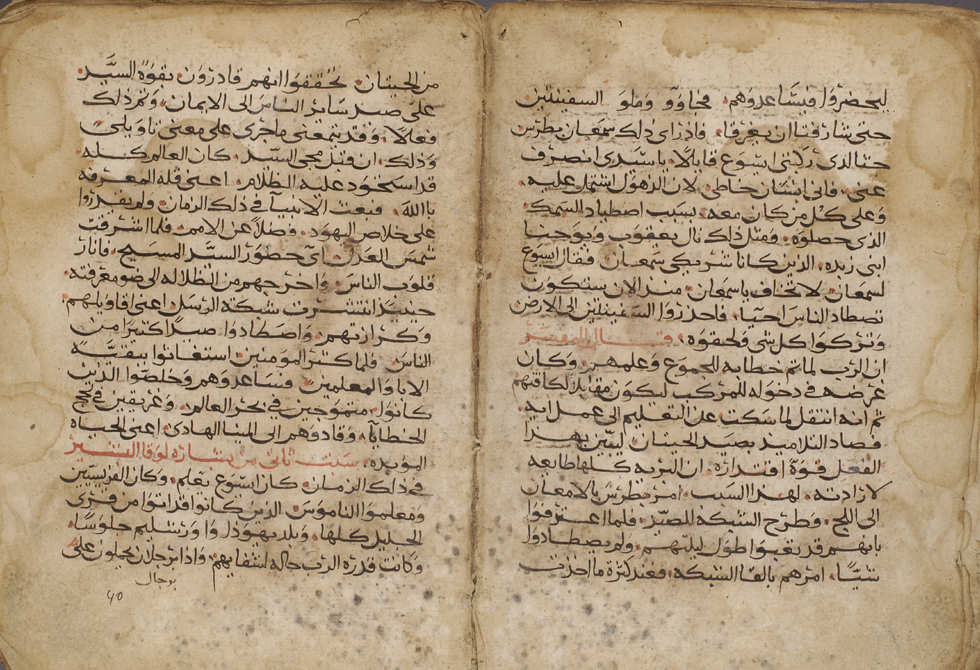 ليحضروا فيساعدوهم. فجاوو وملو السفينتين
حتى شارفتا ان يغرقا. فاذ راى ذلك سمعان بطرس
جثا لدى ركبتي ايسوع قايلًا. يا سيدي انصرف
عني. فاني انسان خاطي. لان الذهول اشتمل عليه
وعلى كل من كان معه. بسبب اصطياد السمك
الذي حصلوه. ومثل ذلك نال يعقوب ويوحنا
ابني زبده. الذين كانا شريكي سمعان. فقال ايسوع
لسمعان لا تخاف يا سمعان. منذ الان ستكون
تصطاد الناس احيا. فاحذروا السفينتين الى الارض
وتركوا كل شي ولحقوه. قال المفسر
ان الرب لما تم خطابه للجموع وعلمهم. وكان
غرضه في دخوله للمركب ليكون مقابلًا لكافتهم
ثم انه انتقل لما سكت عن التعليم الى عمل ايه
فصاد التلاميد بصيد الحيتان ليبين بهذا
الفعل قوة اقتداره. ان البريه كلها طايعه
لارادته. لهذا السبب امر بطرس بالامعان
الى اللج. وطرح الشبكه للصيد. فلما اعترفوا
بانهم قد تعبوا طول ليلتهم. ولم يصطادوا
شيًّا. امرهم بالقا الشبكه. فعند كثرة ما اخذت
من الحيتان. تحققوا انهم قادرون بقوة السيد
على صيد ساير الناس الى الايمان. وتم ذلك
فعلًا. وقد يتم معنى ما جرى على معنى تاويلي
وذلك. ان قبل مجي السيد. كان العالم كله
قد استحود عليه الظلام. اعني قلة المعرفه
بالله. فبعث الانبيا في ذلك الزمان. ولم يقدروا
على خلاص اليهود. وفضلًا عن الامم. فلما اشرقت
شمس العدل. اي حضور السيد المسيح. فانار
قلوب الناس. واخرجهم من الظلاله الى ضو معرفته
حينيد انتشرت شبكة الرسل. اعني اقاويلهم
وكرازتهم. واصطادوا صيدا كثيرا من
الناس. فلما كثر المومنين. استغاثوا ببقية
الابا والمعلمين. فساعدوهم وخلصوا الذين
كانوا متموجين في بحر العالم. وغريقين في لجج
الخطايا. وقادوهم الى المينا الهادي. اعني الحياه
الموبده. سبت ثاني من بشارة لوقا البشير
في ذلك الزمان. كان ايسوع يعلم. وكان الفريسيين
ومعلموا الناموس الذين كانوا قد اتوا من قرى
الجليل كلها. وبلد يهوذا وا ورشليم جلوسًا.
وكانت قدرة الرب حاله لشفايهم. واذا برجال يحملون على
برجال
40